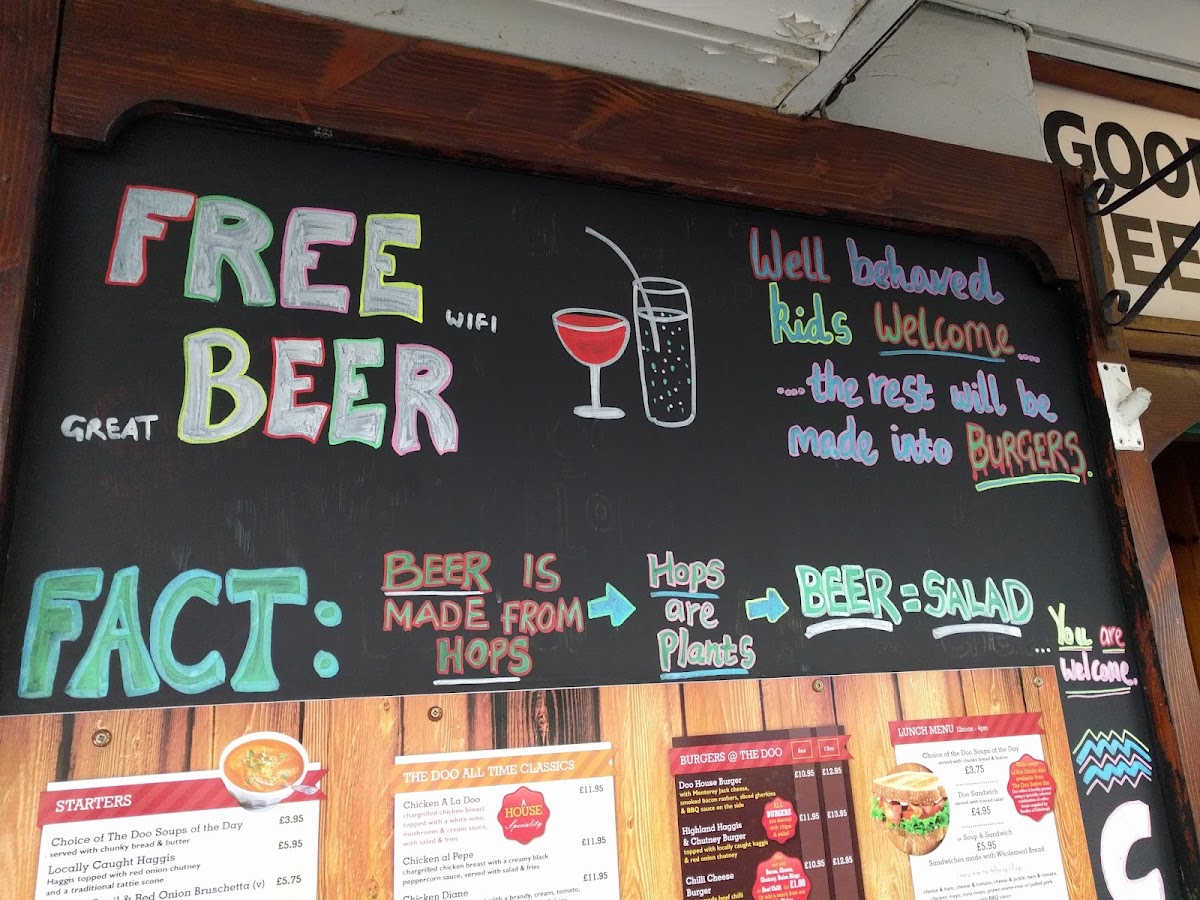 FREE
WIFI
GREAT BEER
Well behaved
kids Welcome....
....the rest will be
made into BURGERS.
FACT:
BEER IS
MADE FROM
HOPS
Hops
are
Plants
BEER = SALAD
... You are
welcome.
GOO
STARTERS
Choice of The Doo Soups of the Day £3.95
served with chunky bread & butter
Locally Caught Haggis £5.95
Haggis topped with red onion chutney
and a traditional tattie scone
& Red Onion Bruschetta (v) £5.75
THE DOO ALL TIME CLASSICS
Chicken A La Doo £11.95
chargrilled chicken breast
topped with a white wine,
mushroom & cream sauce,
with salad & fries
A
HOUSE
Speciality
Chicken al Pepe £11.95
chargrilled chicken breast with a creamy black
peppercorn sauce, served with salad & fries
Chicken Diane £11.95
with a brandy, cream, tomato,
BURGERS @ THE DOO
6oz 12oz
Doo House Burger £10.95 £12.95
with Monterey Jack cheese,
smoked bacon rashers, sliced gherkins
& BBQ sauce on the side
ALL
BURGERS
are served
with chips
& salad
Highland Haggis £11.95 £13.95
& Chutney Burger
topped with locally caught haggis
& red onion chutney
Chilli Cheese £10.95 £12.95
Burger
LUNCH MENU 12noon - 4pm
Choice of the Doo Soups of the Day
served with chunky bread & butter
£3.75
Doo Sandwich
served with tossed salad
£4.95
Soup & Sandwich
£5.95
Sandwiches made with Wholemeal Bread